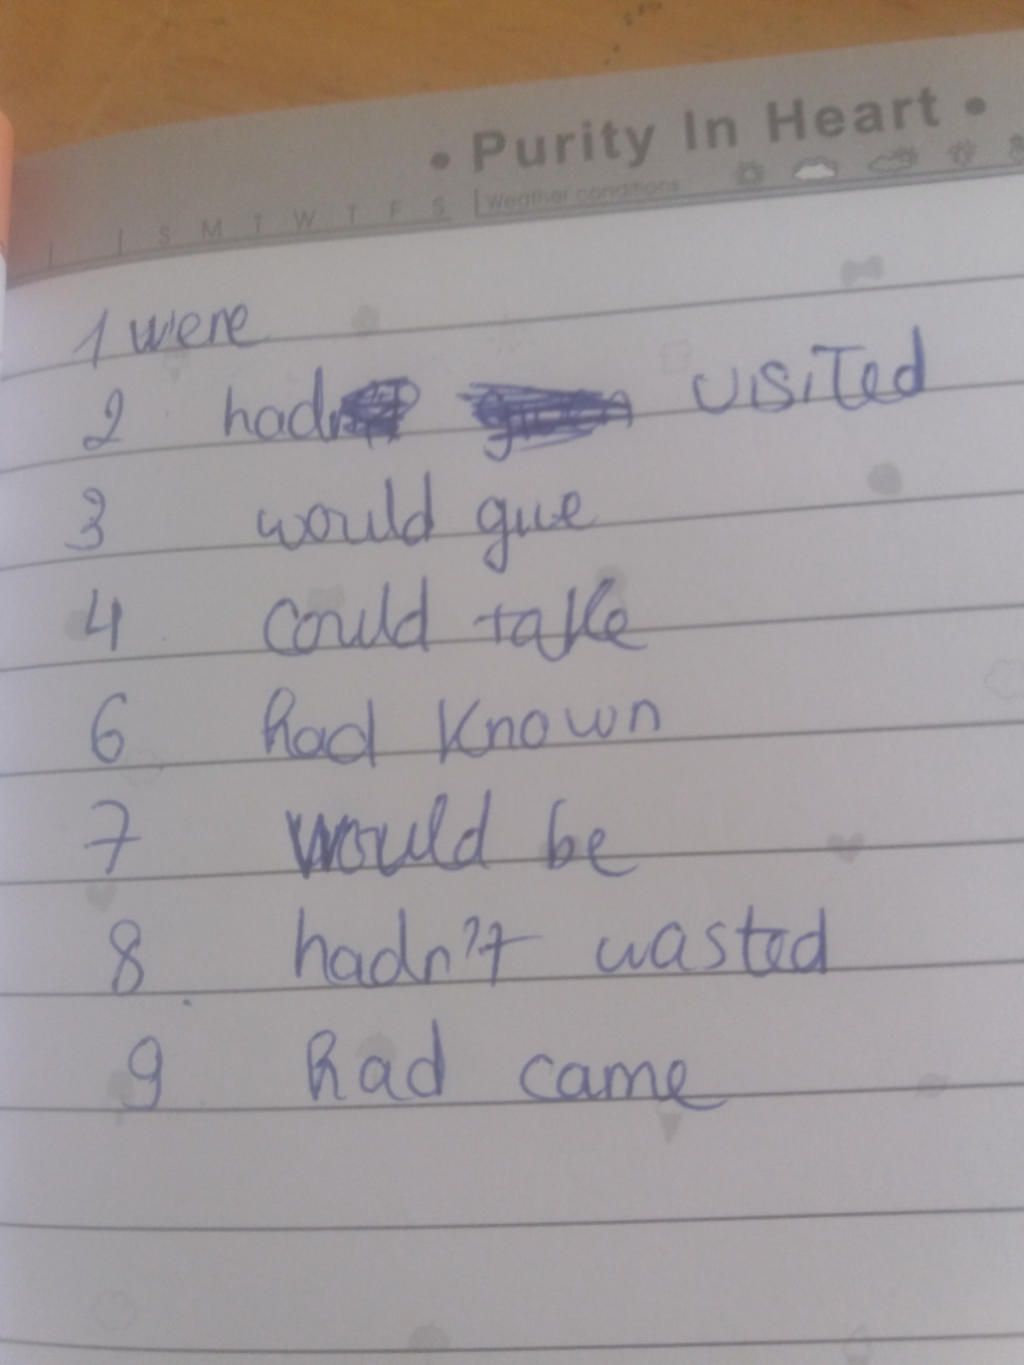 • Purity In Heart •
S M T W T F S Weather conditions
1 were
2 had visited
3 would give
4 could take
6 had known
7 would be
8 hadn't wasted
9 had came